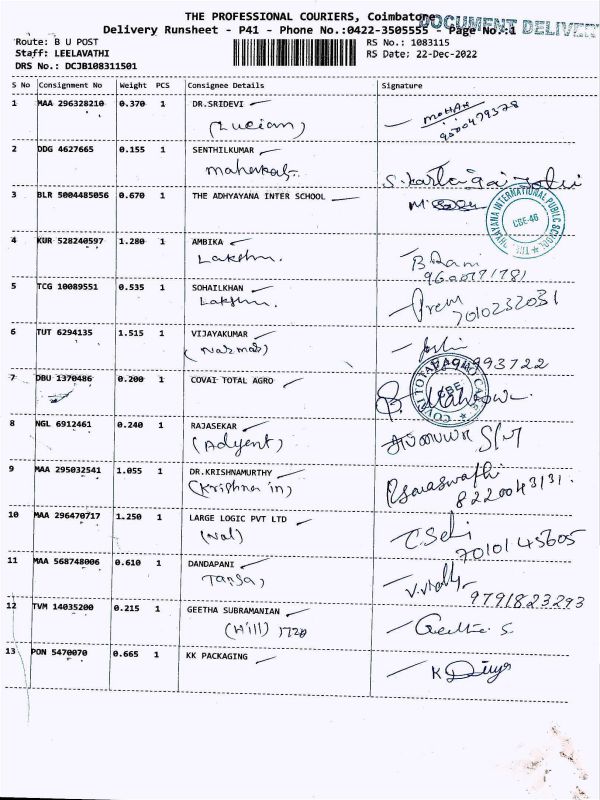 THE PROFESSIONAL COURIERS, Coimbatore
DOCUMENT DELIVER
Delivery Runsheet - P41 - Phone No.:0422-3505555 - Page No.:1
Route: B U POST
RS No.: 1083115
Staff: LEELAVATHI
RS Date: 22-Dec-2022
DRS No.: DCJB108311501
S No Consignment No Weight PCS Consignee Details Signature
1 MAA 296328210 0.370 1 DR.SRIDEVI
(Lucian) MOHAN
9000479378
2 DDG 4627665 0.155 1 SENTHILKUMAR
3 BLR 5004485056 0.670 1 THE ADHYAYANA INTER SCHOOL
THE ADHYAYANA INTERNATIONAL PUBLIC SCHOOL
CBE-46
4 KUR 528240597 1.280 1 AMBIKA
Lakshm. B Ram
9600171781
5 TCG 10089551 0.535 1 SOHAILKHAN
Lakshm. Prem
7010232031
6 TUT 6294135 1.515 1 VIJAYAKUMAR
7 DBU 1370486 0.200 1 COVAI TOTAL AGRO
CBE
8 NGL 6912461 0.240 1 RAJASEKAR
(Adyent)
9 MAA 295032541 1.055 1 DR.KRISHNAMURTHY
(Krishna in) saraswathi
8220043131.
10 MAA 296470717 1.250 1 LARGE LOGIC PVT LTD
(Nal) C.Selvi
7010145605
11 MAA 568748006 0.610 1 DANDAPANI
Tansa, V.vidh
9791823293
12 TVM 14035200 0.215 1 GEETHA SUBRAMANIAN
(Hill) 1720 Geetha S.
13 PON 5470070 0.665 1 KK PACKAGING